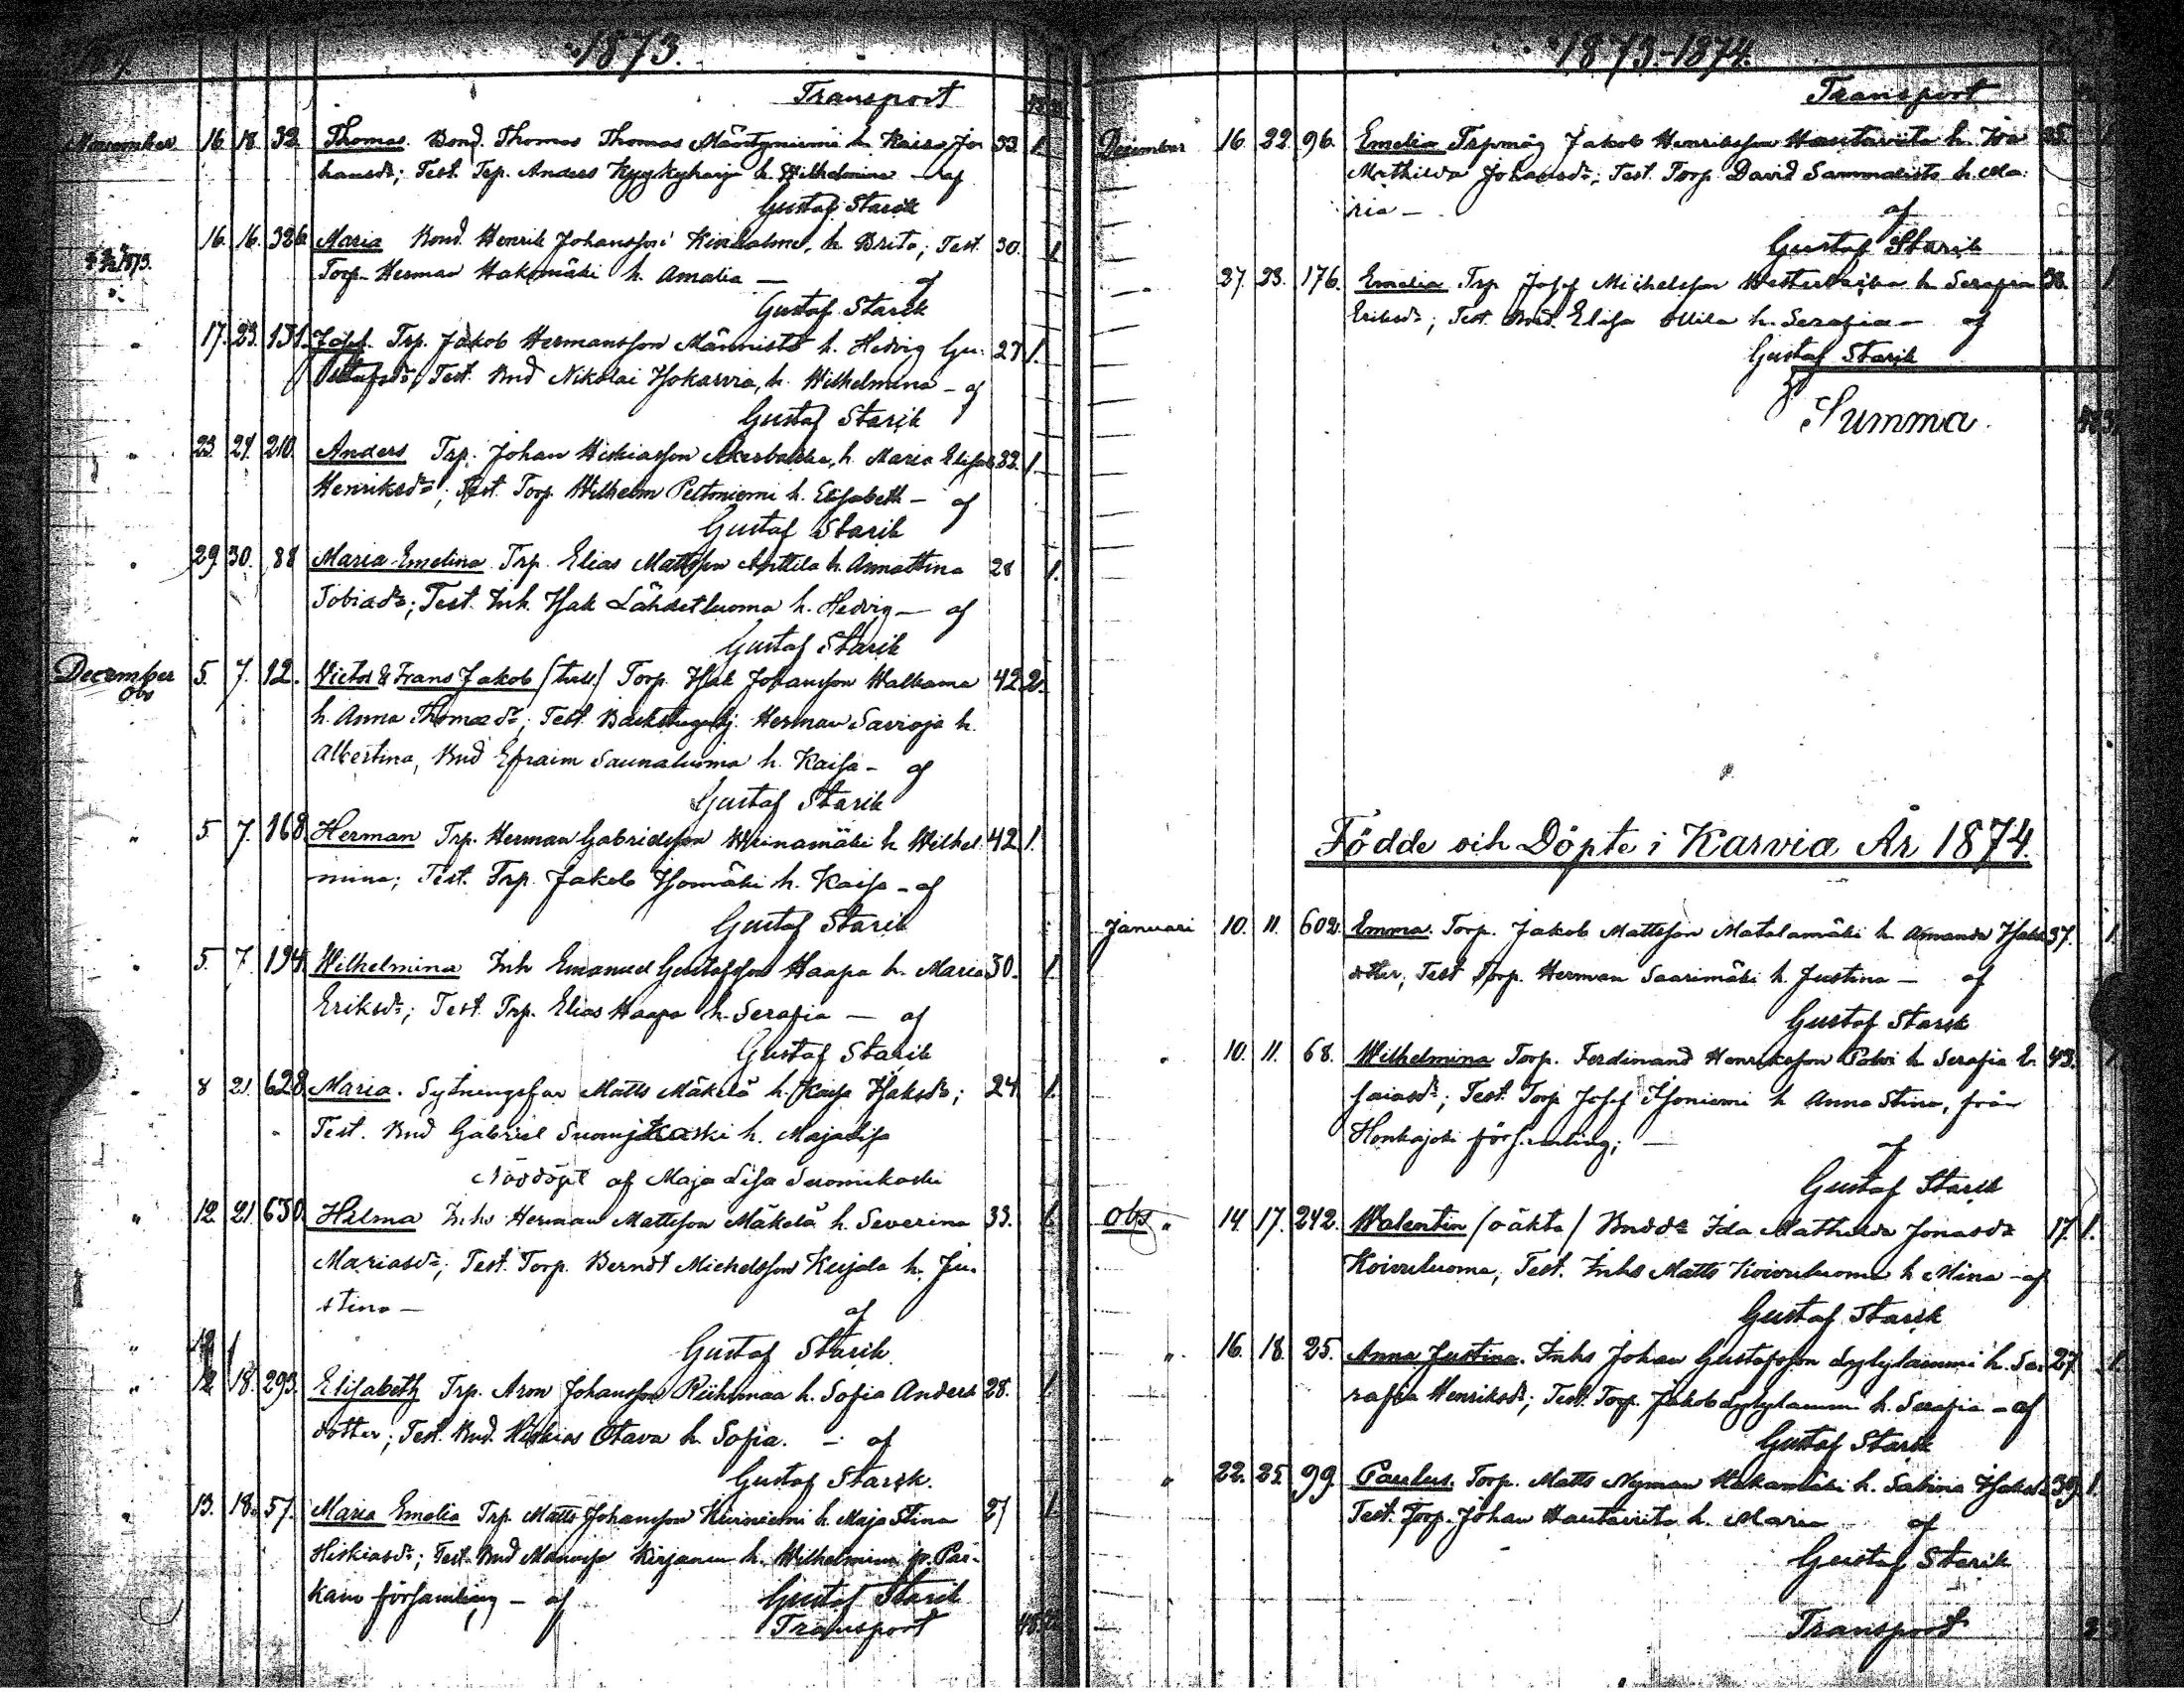 1873.
Transport
November 16. 18. 32. Thomas. Bond. Thomas Thomas Mäntyniemi h. Kaisa Jo- 33. 1.
hansdr; Test. Trp. Anders Kyykyharju h. Wilhelmina — af
Gustaf Starck
16. 16. 326. Maria Bond. Henrik Johansson h. Brita; Test. 30. 1
Torp. Herman Hakomäki h. Amalia — af
Gustaf Starck
" 17. 23. 131. Josef. Trp. Jakob Hermansson Männistö h. Hedvig Gu- 27 1.
stafsdr; Test. Bnd Nikolai Isokarvia, h. Wilhelmina — af
Gustaf Starck
" 23. 24. 210. Anders Trp. Johan Hiskiasson h. Maria Elisab 32. 1.
Henriksdr; Test. Torp. Wilhelm Peltoniemi h. Elisabeth — af
Gustaf Starck
" 29. 30. 88 Maria Emelina Trp. Elias Mattsson Anttila h. Annastina 28 1.
Tobiasdr; Test. Inh. Isak Lähdetluoma h. Hedvig — af
Gustaf Starck
December 5. 7. 12. Victor & Frans Jakob (tvill.) Torp. Isak Johansson Walkama 42 2.
Obs h. Anna Thomasdr; Test. Backstugusitj. Herman Savioja h.
Albertina, Bnd Efraim Saunaluoma h. Kaisa — af
Gustaf Starck
" 5. 7. 168. Herman Trp. Herman Gabrielsson Weinamäki h. Wilhel- 42. 1.
mina; Test. Trp. Jakob Isomäki h. Kaisa — af
Gustaf Starck
" 5. 7. 194. Wilhelmina Inh Emanuel Gustafsson Haapa h. Maria 30. 1.
Eriksdr; Test. Trp. Elias Haapa h. Serafia — af
Gustaf Starck
" 8 21. 628. Maria. Sytningsfar Matts Mäkelä h. Kaisa Isaksdr; 24. 1.
Test. Bnd Gabriel Suomikoski h. Majalisa
Nöddöpt af Maja Lisa Suomikoski
" 12. 21. 650. Hilma Inhs Herman Mattsson Mäkelä h. Severina 33. 1.
Mariasdr; Test. Torp. Berndt Michelsson Kujala h. Ju-
stina — af
Gustaf Starck
" 12. 18. 293. Elisabeth Trp. Aron Johansson Riihimaa h. Sofia Anders 28. 1
dotter; Test. Bnd. Hiskias Otava h. Sofia. — af
Gustaf Starck.
" 13. 18. 57. Maria Emelia Trp. Matts Johansson Kivniemi h. Maja Stina 27 1.
Hiskiasdr; Test. Bnd Kirjanen h. Wilhelmina fr. Par-
kano församling — af Gustaf Starck
Transport
1873.-1874.
Transport
December 16. 22. 96. Emelia Jakob Henriksson Hautaviita h. 35. 1
Mathilda Johansdr; Test. Torp. David Sammalisto h. Ma-
ria — af
Gustaf Starck
" 27. 28. 176. Emelia Trp. Josef Michelsson h. Serafia 38. 1
Eriksdr; Test. Bnd. Elisa Ollila h. Serafia — af
Gustaf Starck
Summa
Födde och Döpte i Karvia År 1874.
Januari 10. 11. 602. Emma. Torp. Jakob Mattsson Matalamäki h. Amanda Isaks 37. 1.
dotter; Test. Torp. Herman Saarimäki h. Justina — af
Gustaf Starck
" 10. 11. 68. Wilhelmina Torp. Ferdinand Henriksson Polvi h. Serafia E- 43. 1
saiasdr; Test. Torp Josef Isoniemi h. Anna Stina, från
Honkajoki församling; — af
Gustaf Starck
Obs " 14. 17. 242. Walentin (oäkta) Bnddr Ida Mathilda Jonasdr 17. 1.
Koivuluoma; Test. Inhs Matts Koivuluoma h. Mina — af
Gustaf Starck
" 16. 18. 25. Anna Justina. Inhs Johan Gustafsson Syltylammi h. Se- 27. 1.
rafia Henriksdr; Test. Torp. Jakob Syltylammi h. Serafia — af
Gustaf Starck
" 22. 25. 99. Paulus. Torp. Matts Nyman Hakamäki h. Sabina Isaksdr 39. 1.
Test. Torp. Johan Hautaviita h. Maria af
Gustaf Starck
Transport